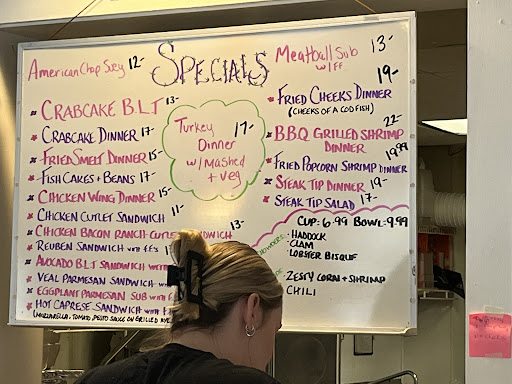 SPECIALS
American Chop Suey 12-
Meatball Sub 13-
w/ FF
CRABCAKE BLT 13-
CRABCAKE DINNER 17-
FRIED SMELT DINNER 15-
FISH CAKES + BEANS 17-
CHICKEN WING DINNER 15-
CHICKEN CUTLET SANDWICH 11-
CHICKEN BACON RANCH CUTLET 13-
REUBEN SANDWICH with F.F.'s
AVOCADO BLT SANDWICH with
VEAL PARMESAN SANDWICH with
EGGPLANT PARMESAN SUB with
HOT CAPRESE SANDWICH with
(MOZZARELLA, TOMATO, PESTO SAUCE ON GRILLED
Turkey 17-
Dinner
w/ Mashed
+ veg
19-
FRIED CHEEKS DINNER
(CHEEKS OF A CODFISH)
22-
BBQ GRILLED SHRIMP
DINNER
19.99
FRIED POPCORN SHRIMP DINNER
STEAK TIP DINNER 19-
STEAK TIP SALAD 17-
CUP: 6.99 BOWL: 9.99
CHOWDERS
- HADDOCK
- CLAM
- LOBSTER BISQUE
- ZESTY CORN + SHRIMP
CHILI